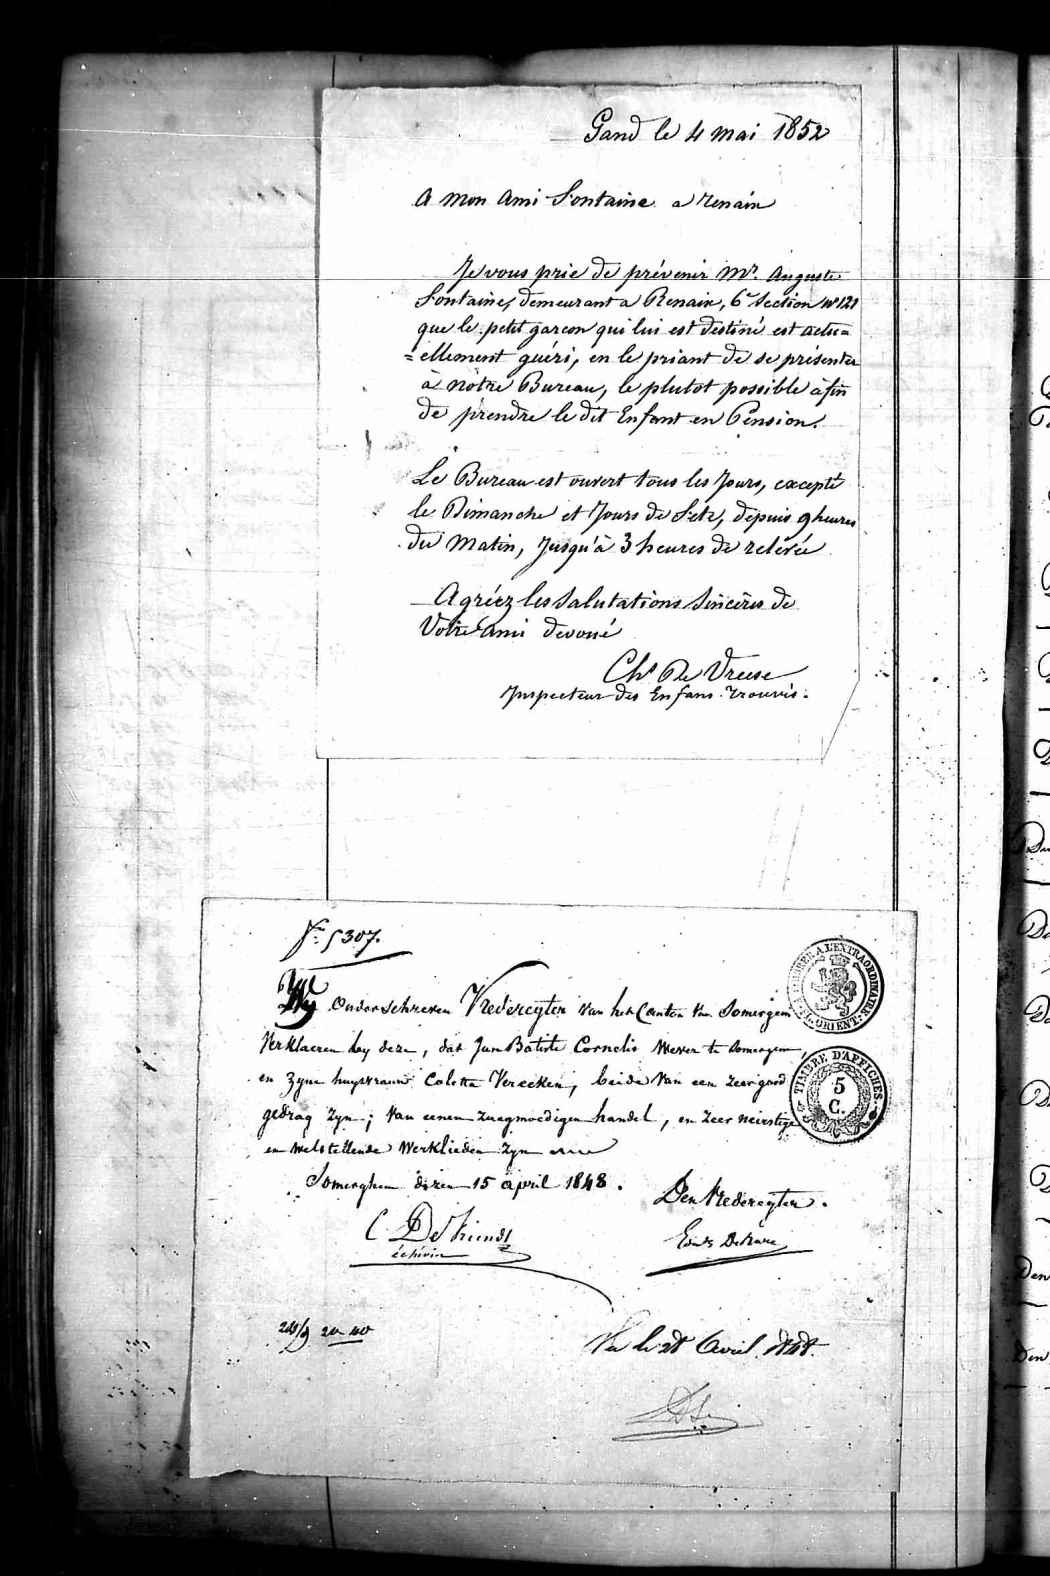 Gand le 4 mai 1852
A mon Ami Fontaine a renaix
Je vous prie de prévenir Mr. Auguste
Fontaine, demeurant a Renaix, 6e Section No 121
que le petit garcon qui lui est destiné est actu=
=ellement guéri, en le priant de se présenter
à nôtre Bureau, le plutot possible àfin
de prendre le dit Enfant en Pension.
Le Bureau est ouvert tous les Jours, excepté
le Dimanche et Jours de Fete, depuis 9 heures
du Matin, Jusqu'à 3 heures de relévée
Agréez les Salutations Sincères de
Votre Ami devoué
Chs De Vreese
Inspecteur des Enfans-Trouvés.
No 5307.
Wy Onderschreven Vredereyten van het Canton van Somergem
Verklaeren by deze, dat Jan Batiste Cornelis Wever te Somergem
en zyne huysvrauw Colette Vereecken, beide van een zeer goed
gedrag zyn; van eenen zuegmoedigen handel, en zeer neirstige
en welstellende Werklieden zyn
Somerghem dezen 15 April 1848.
Den Vredereyter.
échévin
24/9 20-40
Vu le 28 Avril 1848.
TIMBRE A L'EXTRAORDINAIRE
FL. ORIENT.
TIMBRE D'AFFICHES.
5
C.